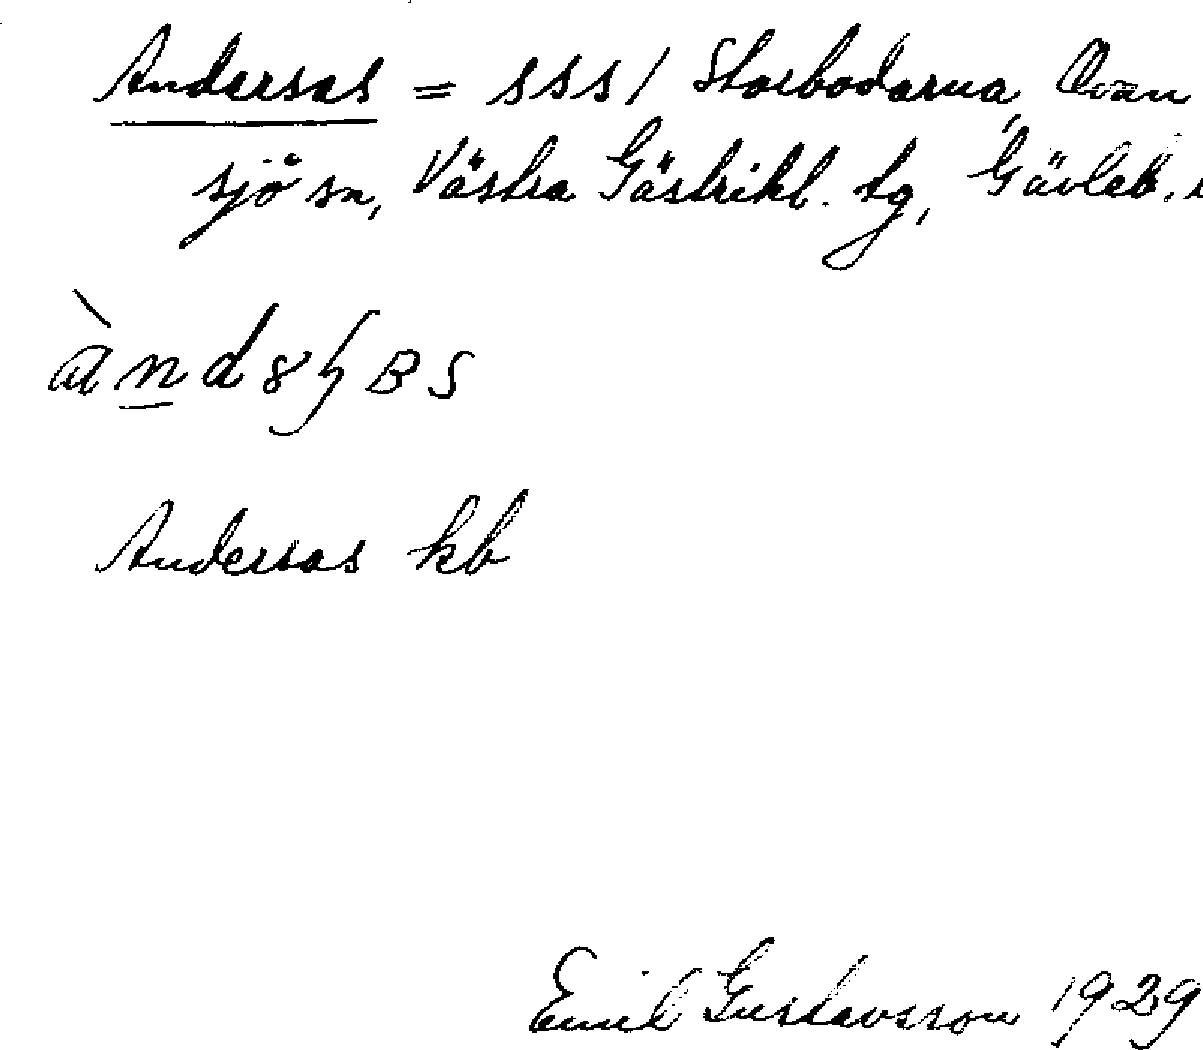 Andersas = SSS / Storbodarna, Ovan
sjö sn, Västra Gästrikl. tg, Gävleb. l
Andersas kb
Emil Gustavsson 1929